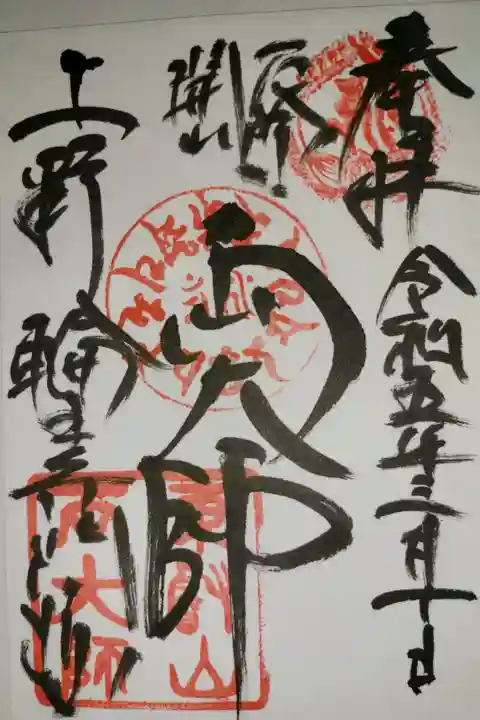 奉拝
令和五年三月十日
開山
両大師
上野
輪王寺
東叡山
両大師